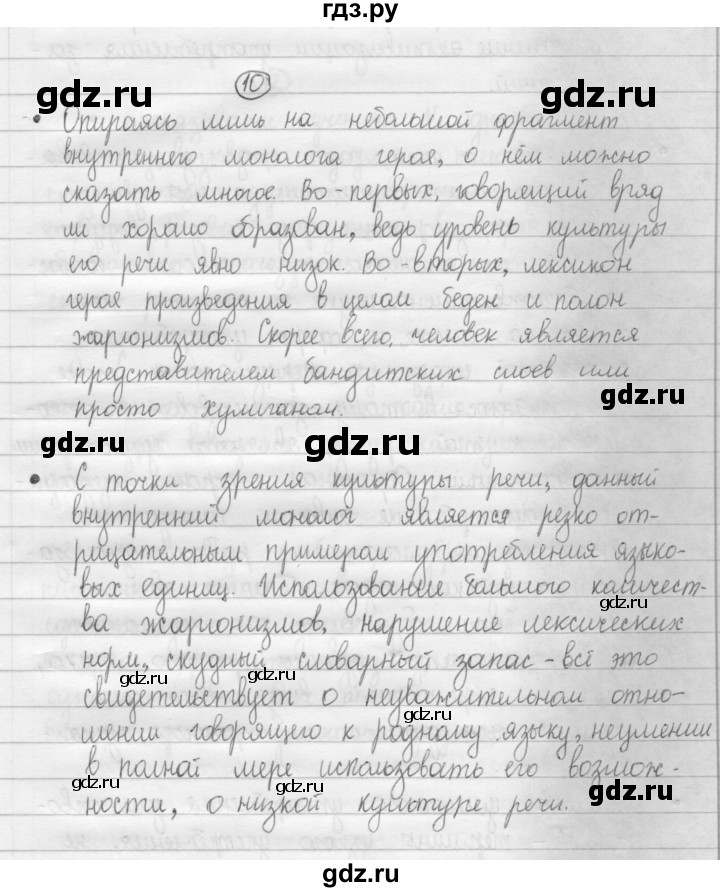 гдз.ру
10
gdz.ru gdz.ru
• Опираясь лишь на небольшой фрагмент
внутреннего монолога героя, о нём можно
сказать многое. Во первых, говорящий вряд
ли хорошо образован, ведь уровень культуры
его речи явно низок. Во-вторых, лексикон
gdz.ru
героя произведения в целом беден и полон
жаргонизмов. Скорее всего, человек является
представителем бандитских слоев или
gdz.ru
просто хулиганом.
gdz.ru gdz.ru
• С точки зрения культуры речи, данный
внутренний монолог является резко от-
рицательным примером употребления языко-
вых единиц. Использование большого количест-
gdz.ru
ва жаргонизмов, нарушение лексических
норм, скудный словарный запас - всё это
gdz.ru
свидетельствует о неуважительном отно-
gdz.ru
шении говорящего к родному языку, неумении
в полной мере использовать его возмож-
gdz.ru gdz.ru
ности, о низкой культуре речи.
gdz.ru